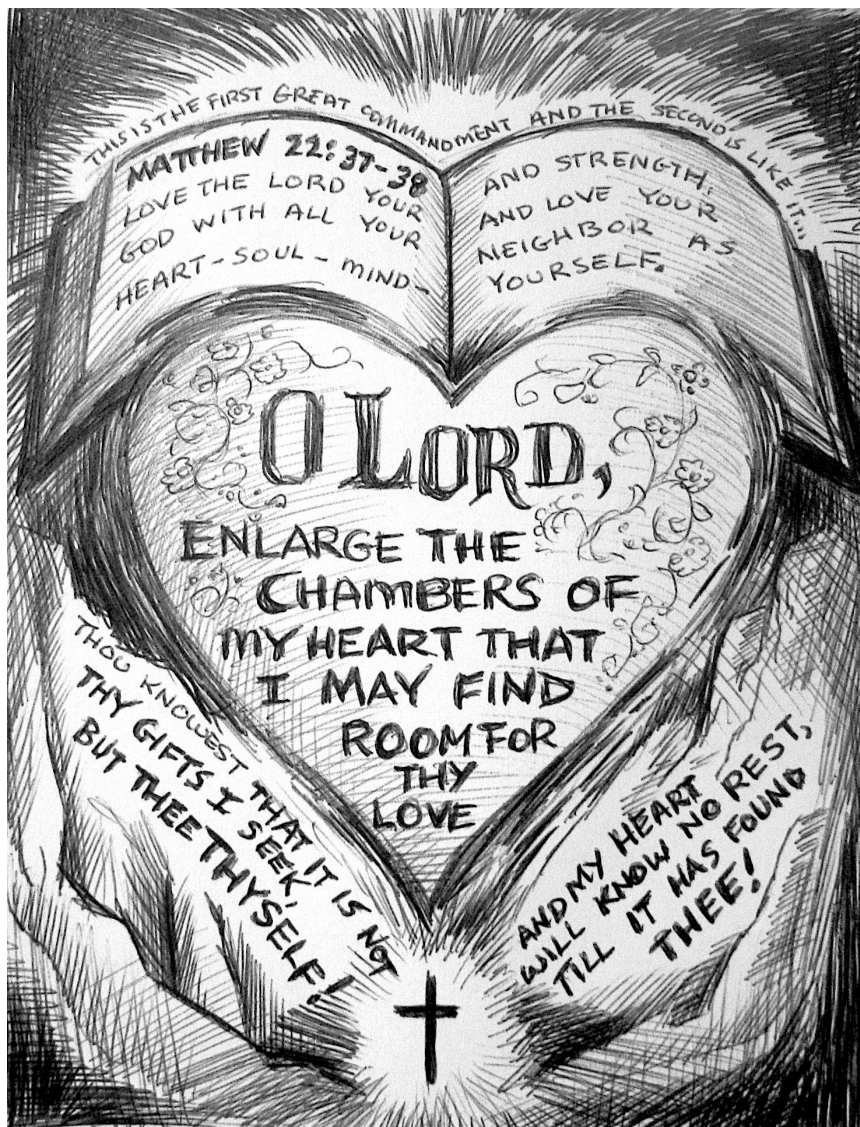 THIS IS THE FIRST GREAT COMMANDMENT AND THE SECOND IS LIKE IT...
MATTHEW 22:37-38
LOVE THE LORD YOUR
GOD WITH ALL YOUR
HEART-SOUL-MIND-
AND STRENGTH,
AND LOVE YOUR
NEIGHBOR AS
YOURSELF.
O LORD,
ENLARGE THE
CHAMBERS OF
MY HEART THAT
I MAY FIND
ROOM FOR
THY
LOVE
THOU KNOWEST THAT IT IS NOT
THY GIFTS I SEEK,
BUT THEE THYSELF!
AND MY HEART
WILL KNOW NO REST,
TILL IT HAS FOUND
THEE!